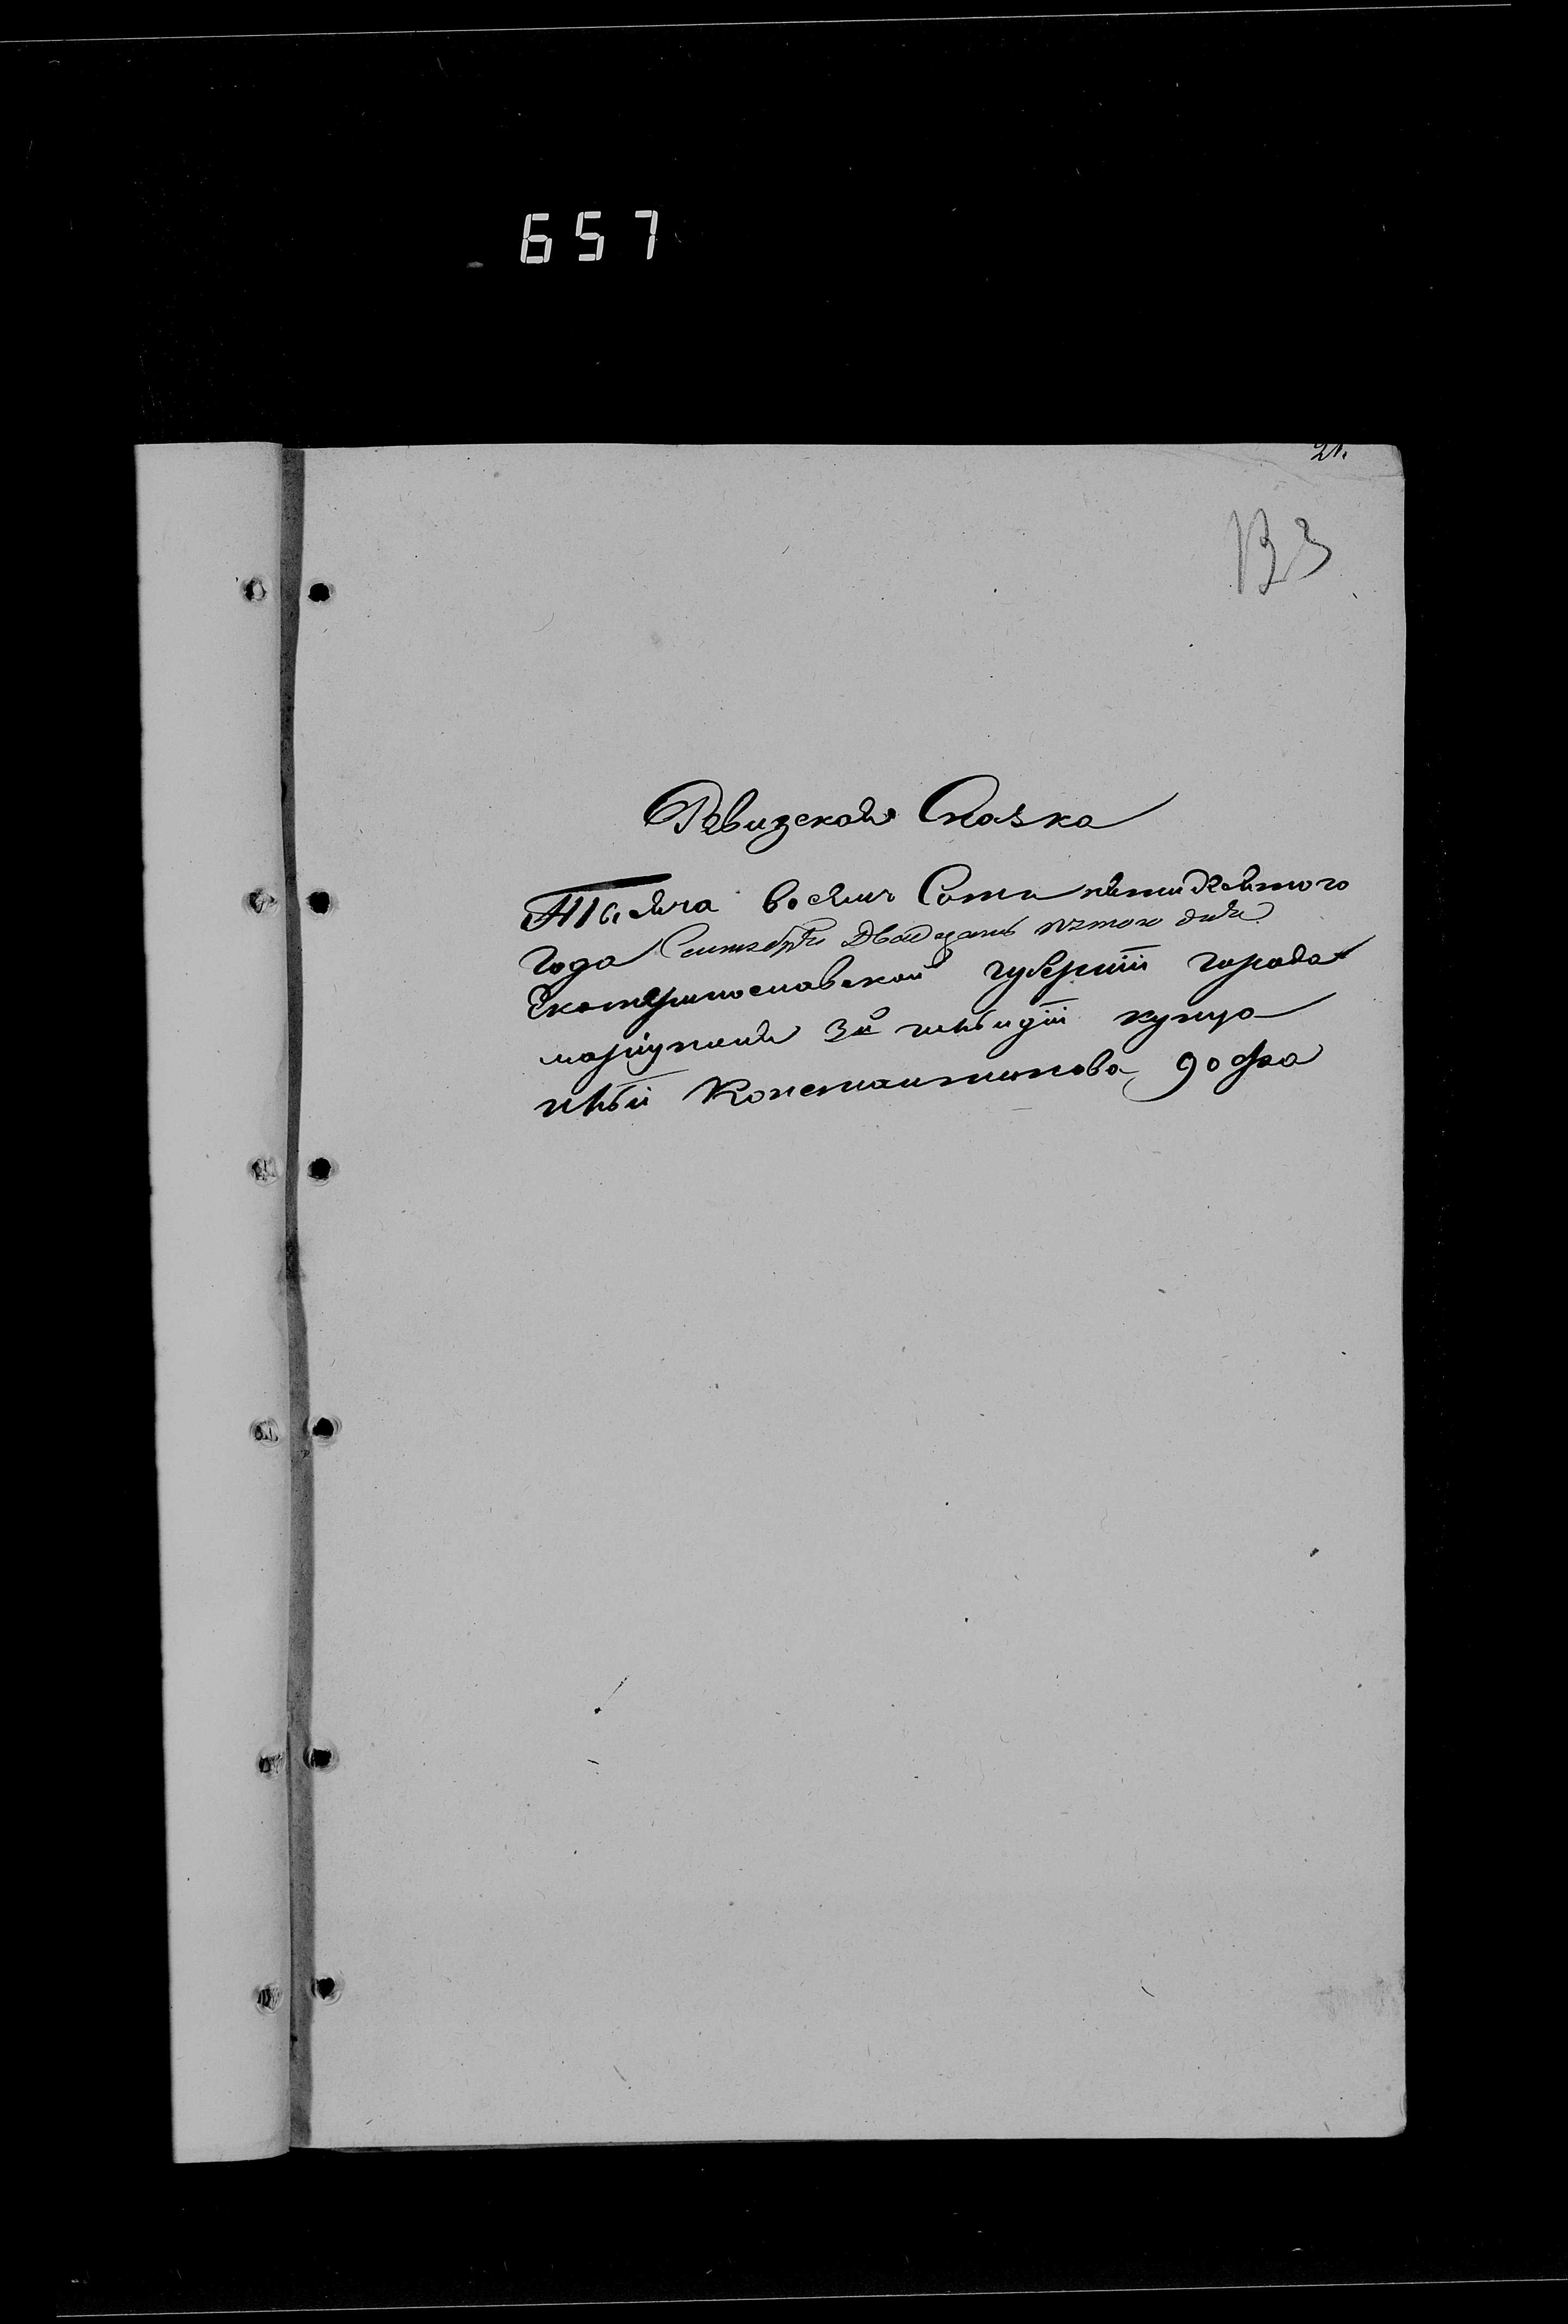 657
21.
133
Ревизская Сказка
Тысяча восемь Сотъ пятидесятого
года Сентября Двадцать пятого дня
Екатеринославской губерніи города
маріуполя 3й гильдіи купца
Константинова